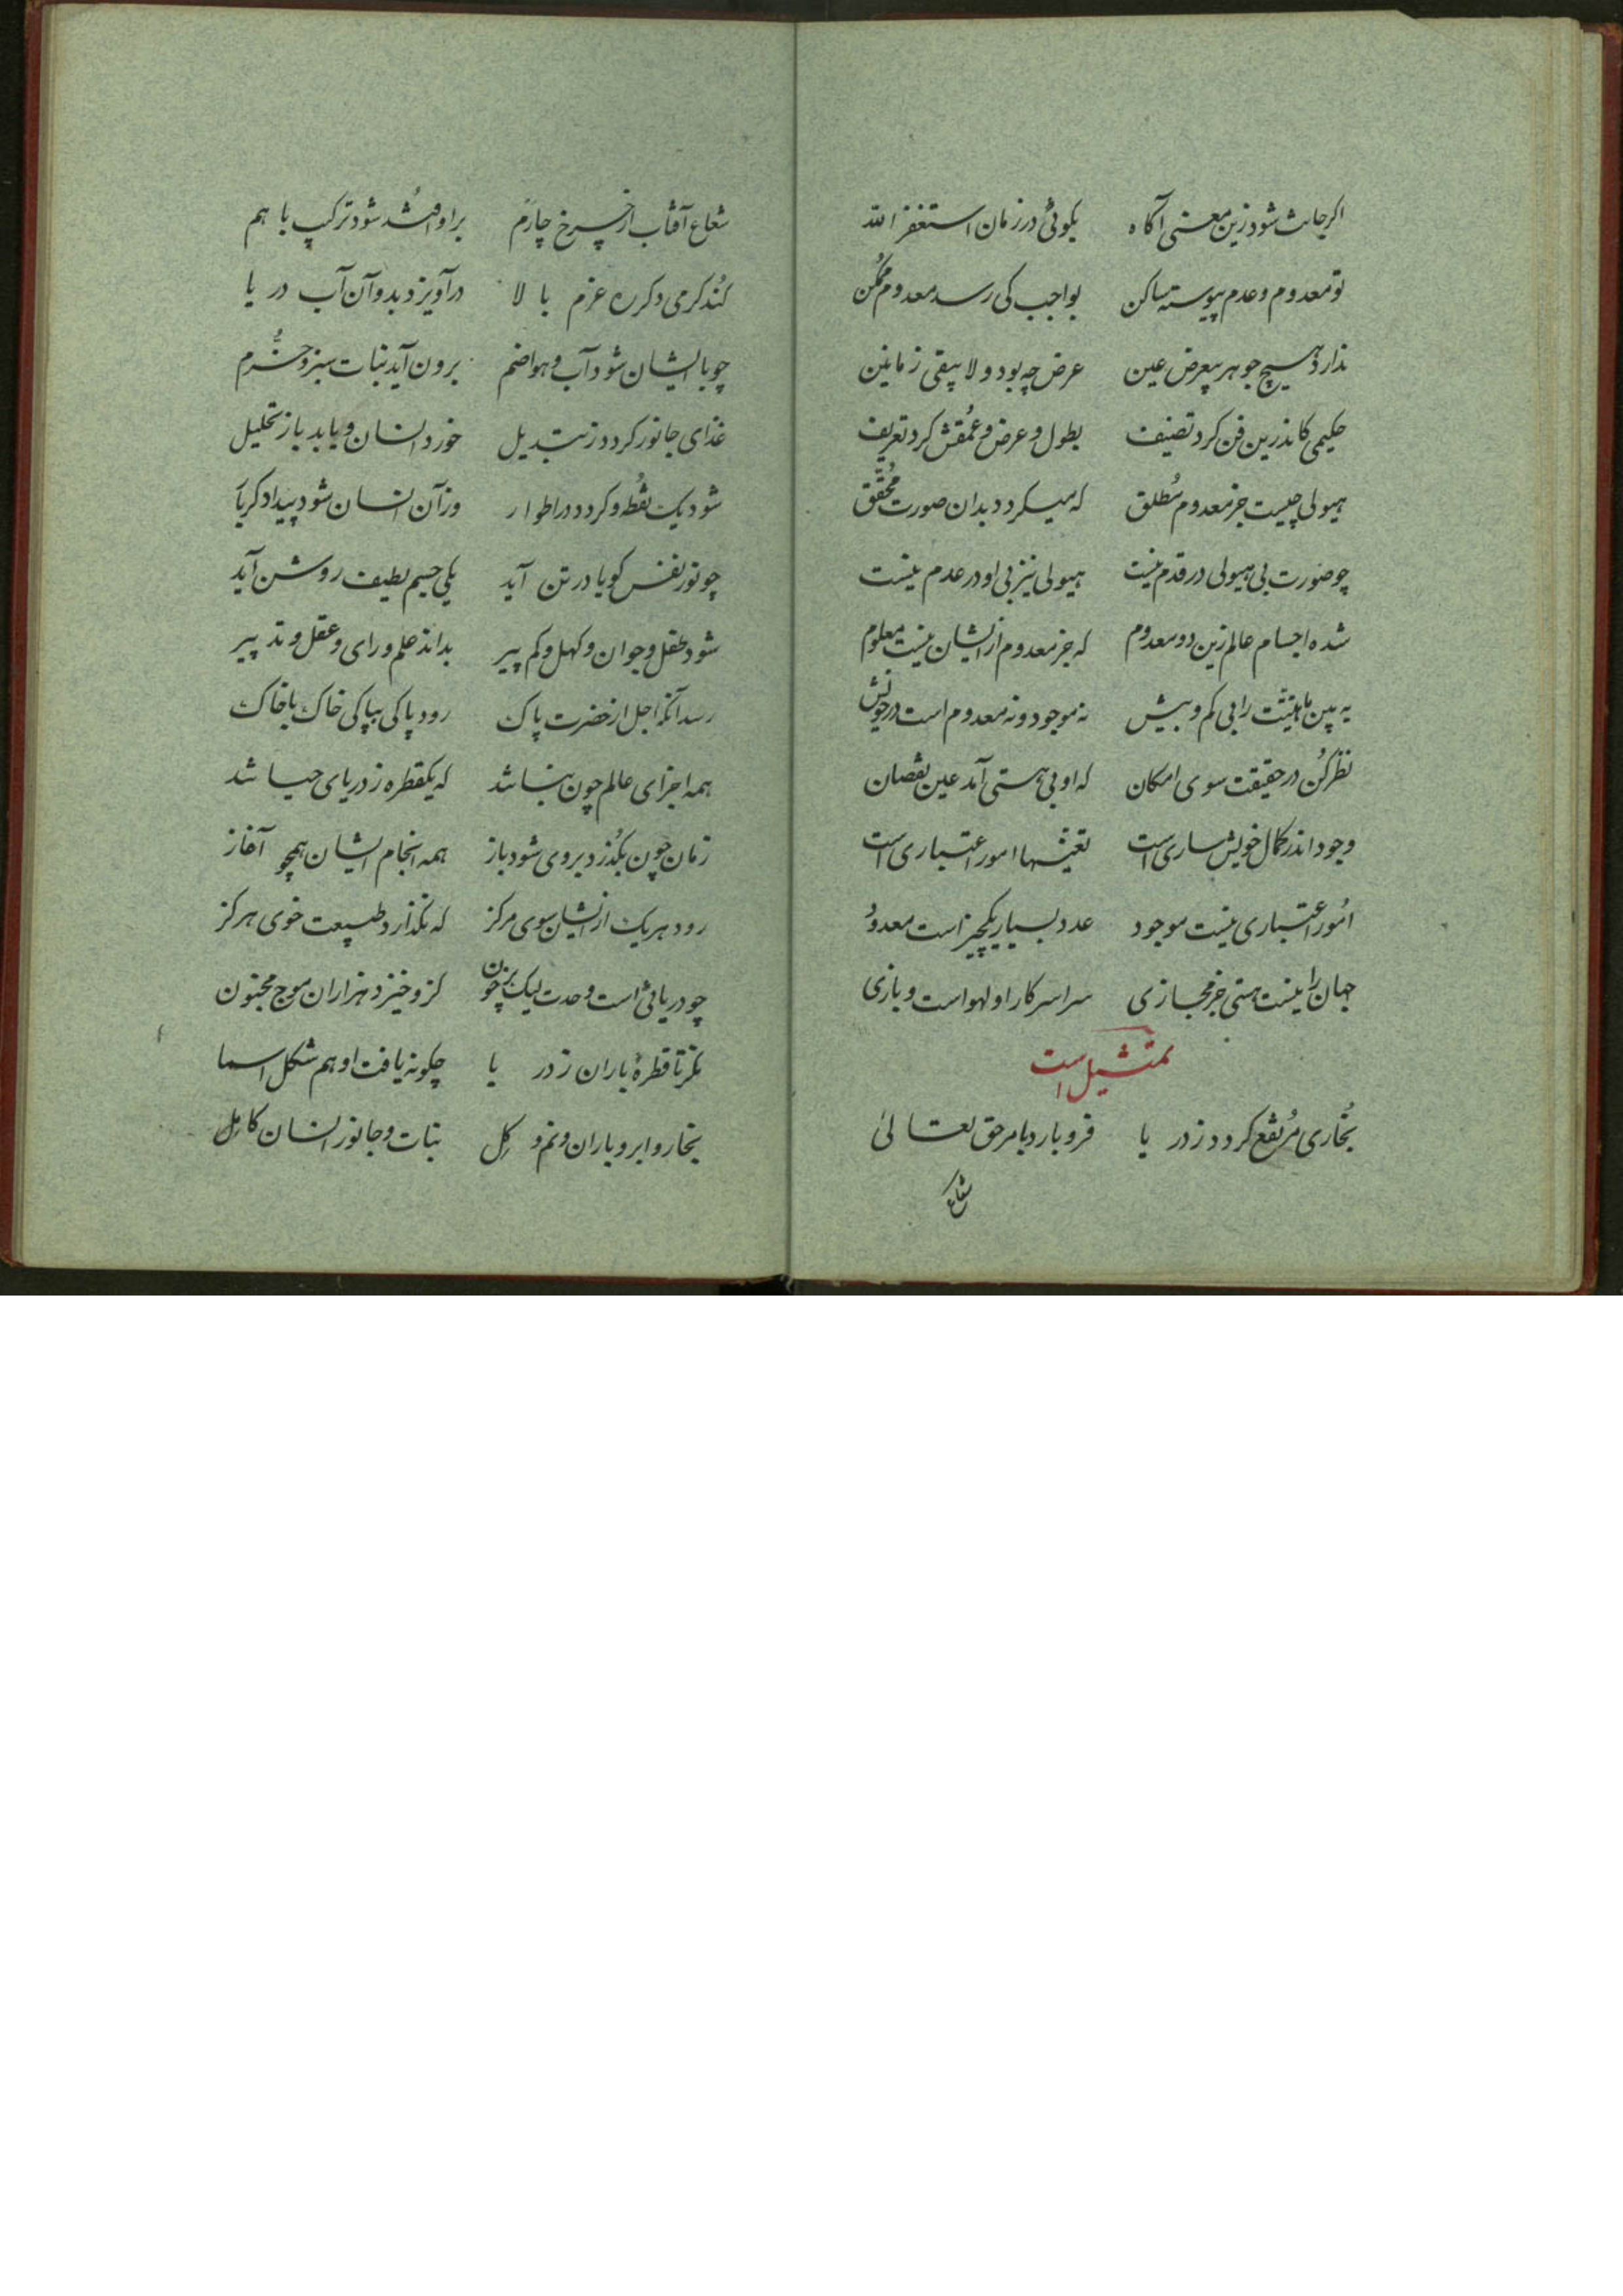 اگر جانت شود زین معنی آگاه بگوئی در زمان استغفر الله
تو معدوم و عدم پیوسته ساکن بواجب کی رسد معدوم ممکن
ندارد هیچ جوهر بیعرض عین عرض چه بود و لا یبقی زمانین
حکیمی کاندرین فن کرد تصنیف بطول و عرض و عمقش کرد تعریف
هیولی چیست جز معدوم مطلق که میگردد بدان صورت محقق
چو صورت بی هیولی در قدم نیست هیولی نیز بی او در عدم نیست
شده اجسام عالم زین دو معدوم که جز معدوم ازایشان نیست معلوم
به بین ماهیتت را بی کم و بیش نه موجود و نه معدوم است در خویش
نظر کن در حقیقت سوی امکان که او بی هستی آمد عین نقصان
وجود اندر کمال خویش ساری است تعینها امور اعتباری است
امور اعتباری نیست موجود عدد بسیار یکچیز است معدود
جهان را نیست هستی جز مجازی سراسر کار او لهو است و بازی
تمثیل است
بخاری مرتفع گردد ز دریا فرو بارد بامر حق تعالی
شعاع
شعاع آفتاب از چرخ چارم بر او افتد شود ترکیب با هم
کند گرمی دگر ره عزم بالا درآویزد بدو آن آب دریا
چو باایشان شود آب و هوا ضم برون آید نبات سبز و خرم
غذای جانور گردد ز تبدیل خورد انسان و یابد باز تحلیل
شود یک نقطه و گردد در اطوار وز آن انسان شود پیدا دگر بار
چو نور نفس گویا در تن آید یکی جسم لطیف روشن آید
شود طفل و جوان و کهل و کم پیر بداند علم و رای و عقل و تدبیر
رسد آنگه اجل از حضرت پاک رود پاکی بپاکی خاک با خاک
همه اجزای عالم چون نباتند که یکقطره ز دریای حیاتند
زمان چون بگذرد بر وی شود باز همه انجام ایشان همچو آغاز
رود هر یک ازایشان سوی مرکز که نگذارد طبیعت خوی هرگز
چو دریائی است وحدت لیک پر خون کزو خیزد هزاران موج مجنون
نگر تا قطرهٔ باران ز دریا چگونه یافت او هم شکل اسما
بخار و ابر و باران و نم و گل نبات و جانور انسان کامل